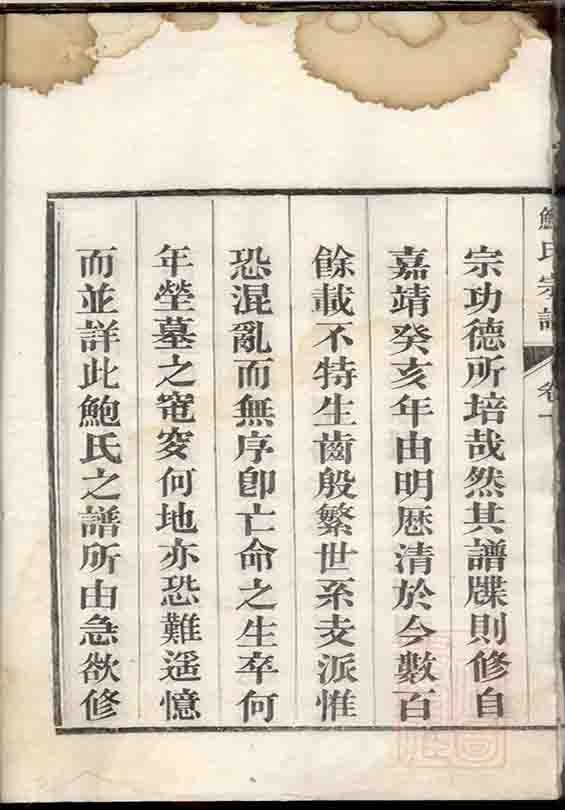 鮑氏宗譜 卷一
宗功德所培哉然其譜牒則修自
嘉靖癸亥年由明歷清於今數百
餘載不特生齒殷繁世系支派惟
恐混亂而無序卽亡命之生卒何
年塋墓之窀穸何地亦恐難遥憶
而並詳此鮑氏之譜所由急欲修